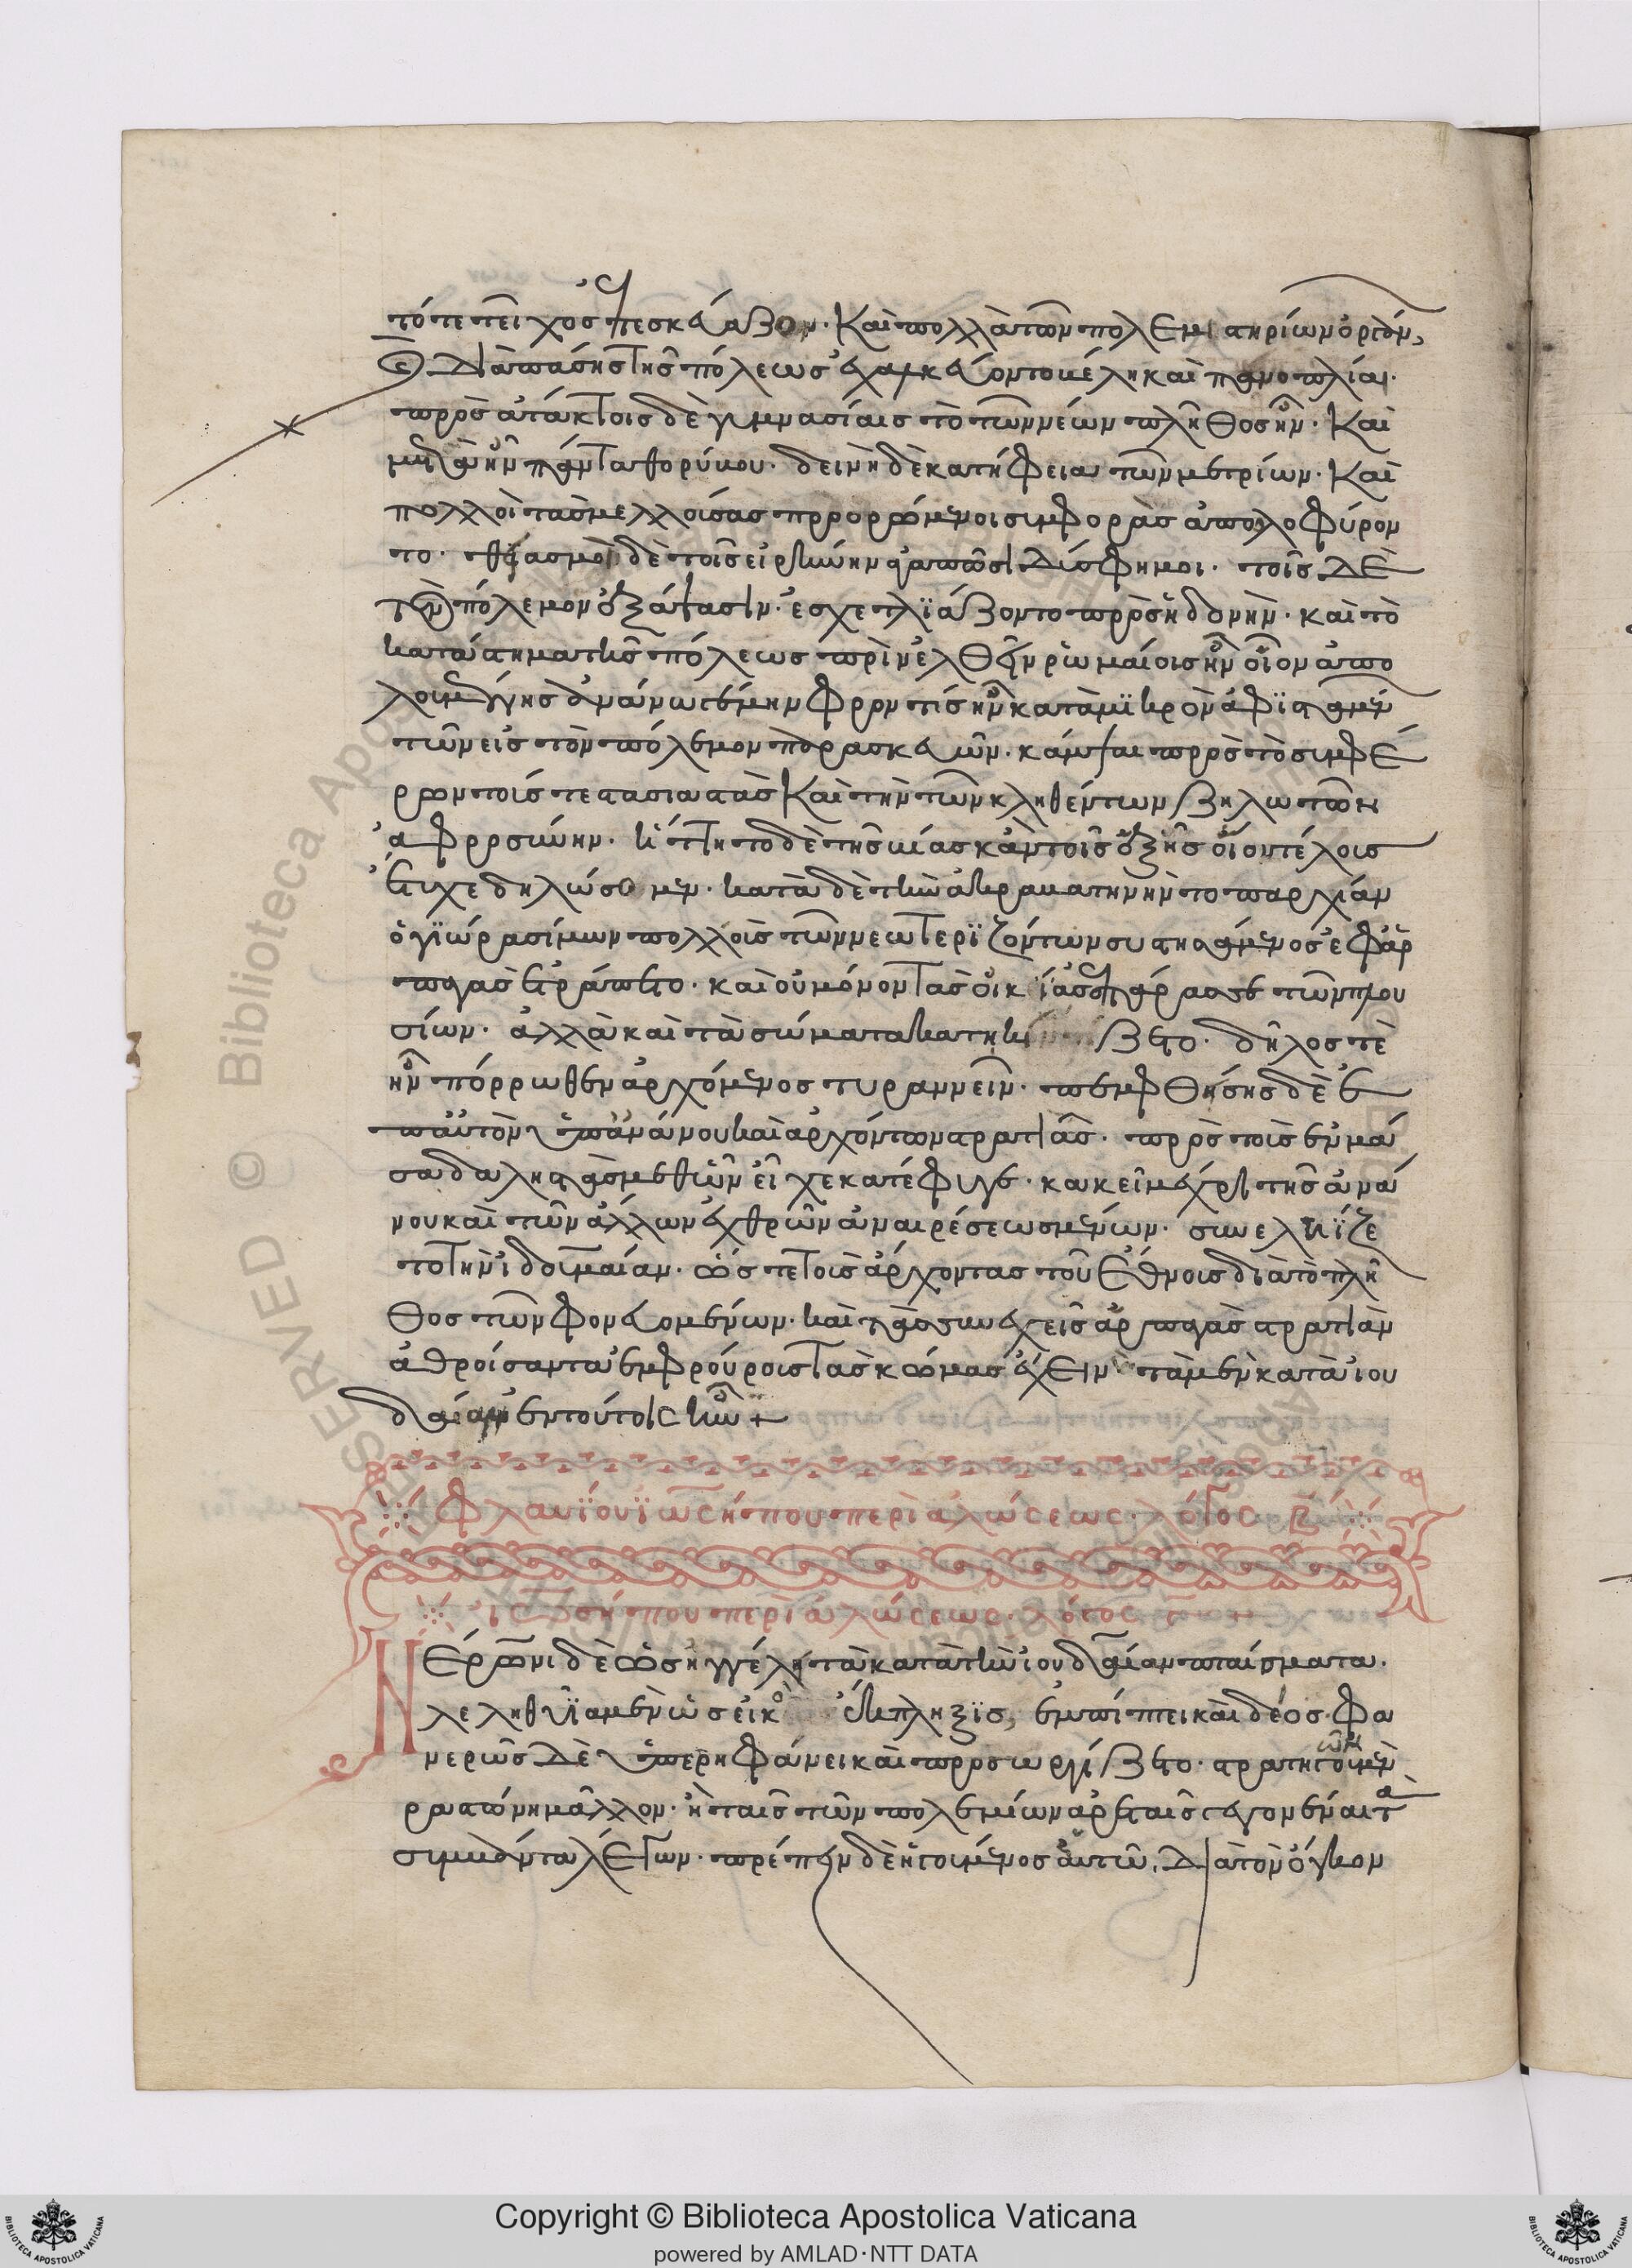 τό τε τεῖχος ἐπεσκεύαζον· καὶ πολλὰ τῶν πολεμιστηρίων ὀργάνων,
διὰ πάσης τῆς πόλεως ἐχαλκεύοντο βέλη καὶ πανοπλίαι·
πρὸς ἀτάκτοις δὲ γυμνασίαις τὸ τῶν νέων πλῆθος ἦν· καὶ
μεστὰ ἦν πάντα θορύβου· δεινὴ δὲ κατήφεια τῶν μετρίων· καὶ
πολλοὶ τὰς μελλούσας προορώμενοι συμφορὰς ἀπολοφύρον
το· θειασμοὶ δὲ τοῖς εἰρήνην ἀγαπῶσι δύσφημοι· τοῖς δὲ
τὸν πόλεμον ἐξάψασιν· ἐσχεδιάζοντο πρὸς ἡδονήν· καὶ τὸ
κατάστημα τῆς πόλεως πρὶν ἐλθεῖν ῥωμαίοις ἦν οἷον ἀπο
λουμένης ἀνάνω γε μὴν φροντὶς ἦν κατὰ μικρὸν ἀφισταμένῳ
τῶν εἰς τὸν πόλεμον παρασκευῶν· κάμψαι πρὸς τὸ συμφέ
ρον τούς τε στασιαστὰς καὶ τὴν τῶν κληθέντων ζηλωτῶν
ἀφροσύνην· ἡττήθη δὲ τῆς βίας κἀν τοῖς ἑξῆς οἵου τέλους
ἔτυχε δηλώσομεν· κατὰ δὲ τὴν ἀκραβατηνὴν τοπαρχίαν
ὁ γιώρα σίμων πολλοὺς τῶν νεωτεριζόντων συστησάμενος ἐφ᾽ ἁρ
παγὰς ἐτράπετο· καὶ οὐ μόνον τὰς οἰκίας ἐσπάρασσε τῶν πλου
σίων· ἀλλὰ καὶ τὰ σώματα κατῃκίζετο· δῆλός τε
ἦν πόρρωθεν ἀρχόμενος τυραννεῖν· πεμφθείσης δὲ ἐ
π᾽ αὐτὸν ὑπ᾽ ἀνάνου καὶ ἀρχόντων στρατιᾶς· πρὸς τοὺς ἐν μα
σάδα λῃστὰς μεθ᾽ ὧν εἶχε κατέφυγε· κἀκεῖ μέχρι τῆς ἀνά
νου καὶ τῶν ἄλλων ἐχθρῶν ἀναιρέσεως μένων· συνεληΐζε
το τὴν ἰδουμαίαν· ὥστε τοὺς ἄρχοντας τοῦ ἔθνους διὰ τὸ πλῆ
θος τῶν φονευομένων· καὶ τὰς συνεχεῖς ἁρπαγὰς στρατιὰν
ἀθροίσαντας ἐμφρούρους τὰς κώμας ἔχειν· τὰ μὲν κατὰ ἰου
δαίαν ἐν τούτοις ἦν +
Φλαυΐου ϊωσήπου περὶ ἁλώσεως· λόγος β
ἰωσήπου περὶ ἁλώσεως· λόγος γ
Νέρωνι δὲ ὡς ἠγγέλη τὰ κατὰ τὴν ἰουδαίαν πταίσματα·
λεληθυῖα μὲν ὡς εἰκὸς ἔκπληξις, ἐμπίπτει καὶ δέος· φα
νερῶς δὲ ὑπερηφάνει καὶ προσωργίζετο· στρατηγῶν μὲν
ῥᾳστώνῃ μᾶλλον· ἢ ταῖς τῶν πολεμίων ἀρεταῖς γεγονέναι τὰ
συμβάντα λέγων· πρέπειν δὲ ἡγούμενος αὑτῷ, διὰ τὸν ὄγκον